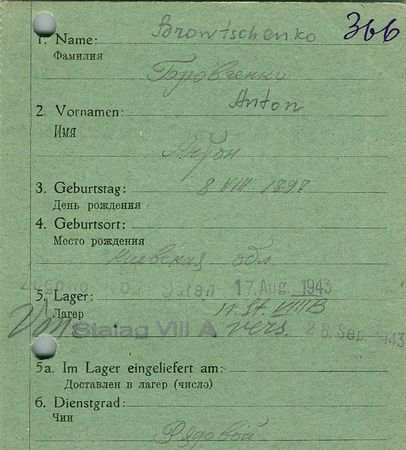 Browtschenko 366
1. Name:
Фамилия
Бровченко
Anton
2. Vornamen:
Имя
Антон
3. Geburtstag: 8 VIII 1898
День рождения
4. Geburtsort:
Место рождения
Киевская обл.
Zugang von Osten 17. Aug. 1943
5. Lager: n. St. VIII B
Лагер
Von Stalag VIII A vers. 28. Sep. 1943
5a. Im Lager eingeliefert am:
Доставлен в лагер (число)
6. Dienstgrad:
Чин
Рядовой